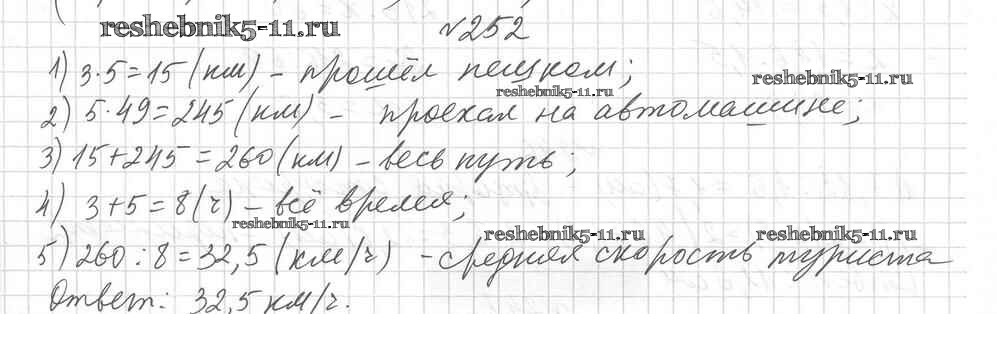 reshebnik5-11.ru
№252
1) 3·5=15 (км) – прошёл пешком;
reshebnik5-11.ru
reshebnik5-11.ru
2) 5·49=245 (км) – проехал на автомашине;
3) 15+245=260 (км) – весь путь;
4) 3+5=8 (ч) – всё время;
reshebnik5-11.ru
reshebnik5-11.ru
reshebnik5-11.ru
5) 260:8=32,5 (км/ч) – средняя скорость туриста
Ответ: 32,5 км/ч.